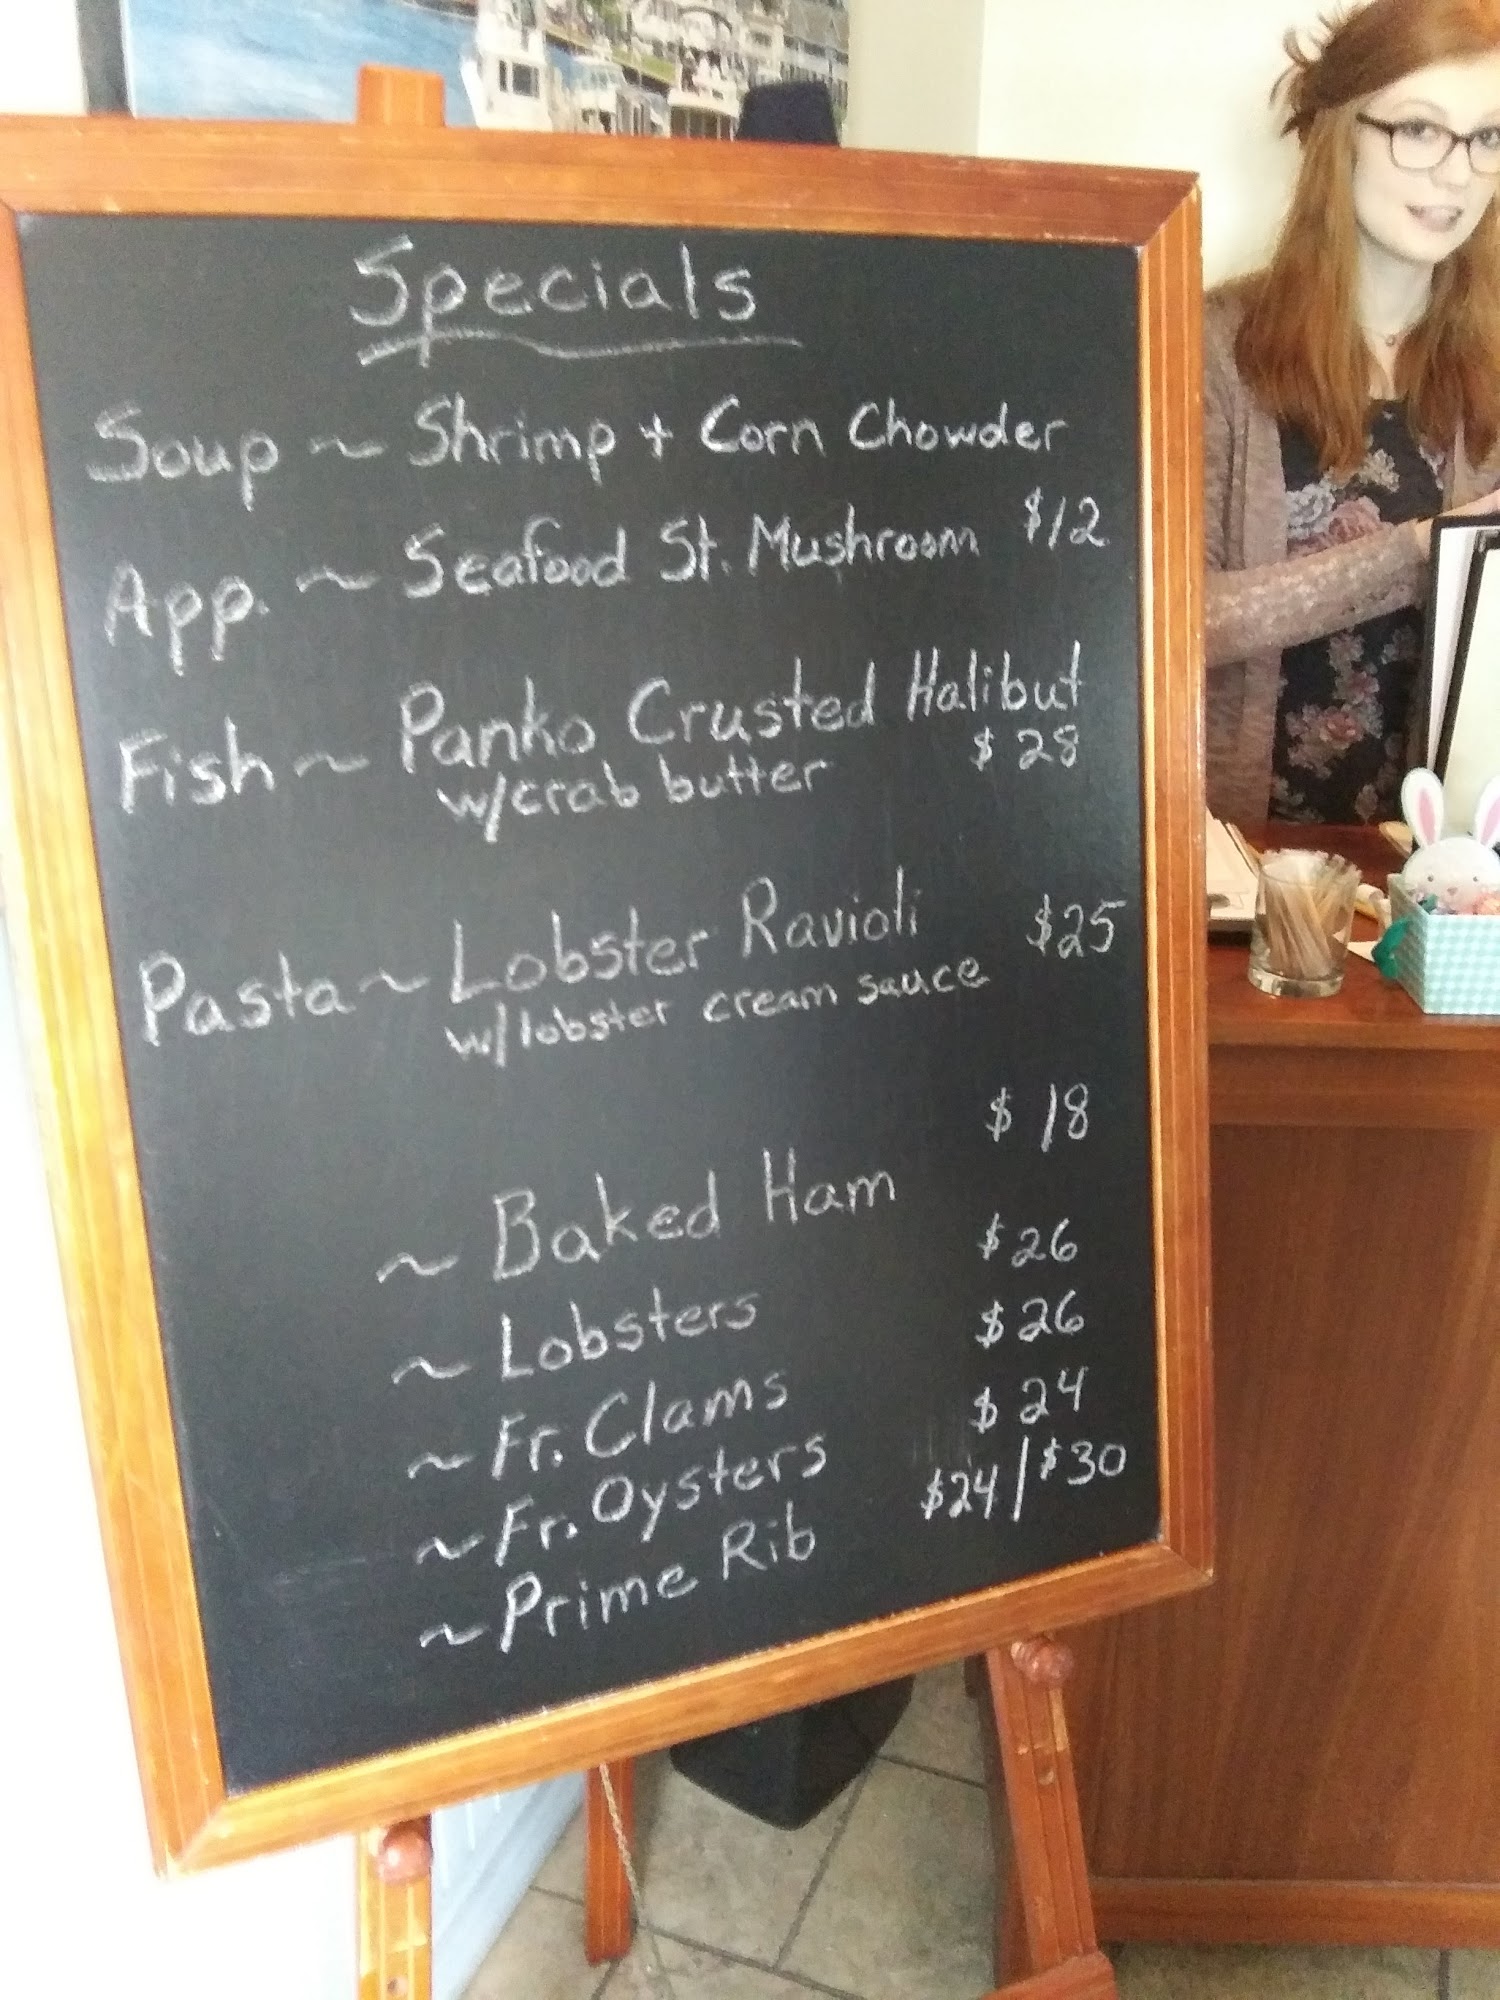 Specials
Soup ~ Shrimp + Corn Chowder
App. ~ Seafood St. Mushroom $12
Fish ~ Panko Crusted Halibut
w/crab butter $28
Pasta ~ Lobster Ravioli $25
w/lobster cream sauce
~ Baked Ham $18
~ Lobsters $26
~ Fr. Clams $26
~ Fr. Oysters $24
~ Prime Rib $24/$30